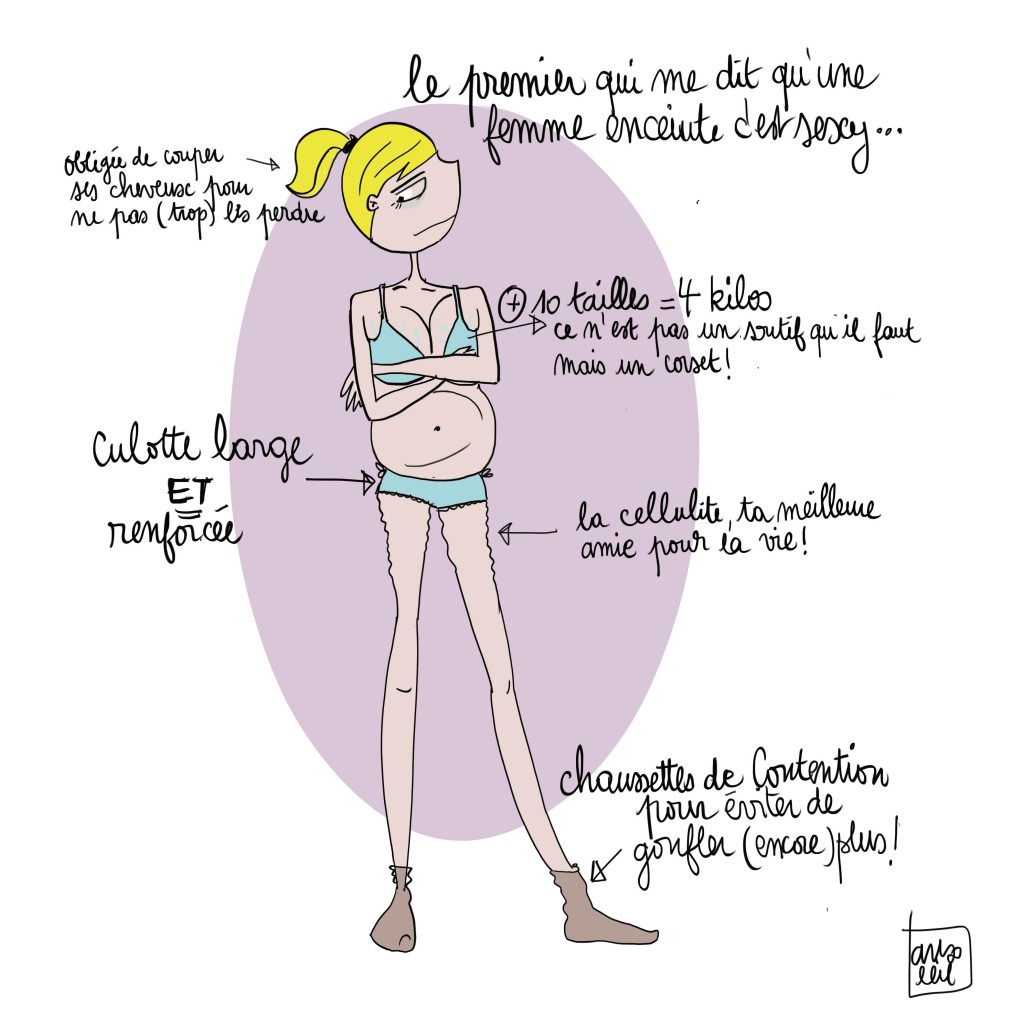 le premier qui me dit qu'une
femme enceinte c'est sexy...
obligée de couper
ses cheveux pour
ne pas (trop) les perdre
+ 10 tailles = 4 kilos
ce n'est pas un soutif qu'il faut
mais un corset !
culotte large
ET
renforcée
la cellulite, ta meilleure
amie pour la vie !
chaussettes de Contention
pour éviter de
gonfler (encore) plus !